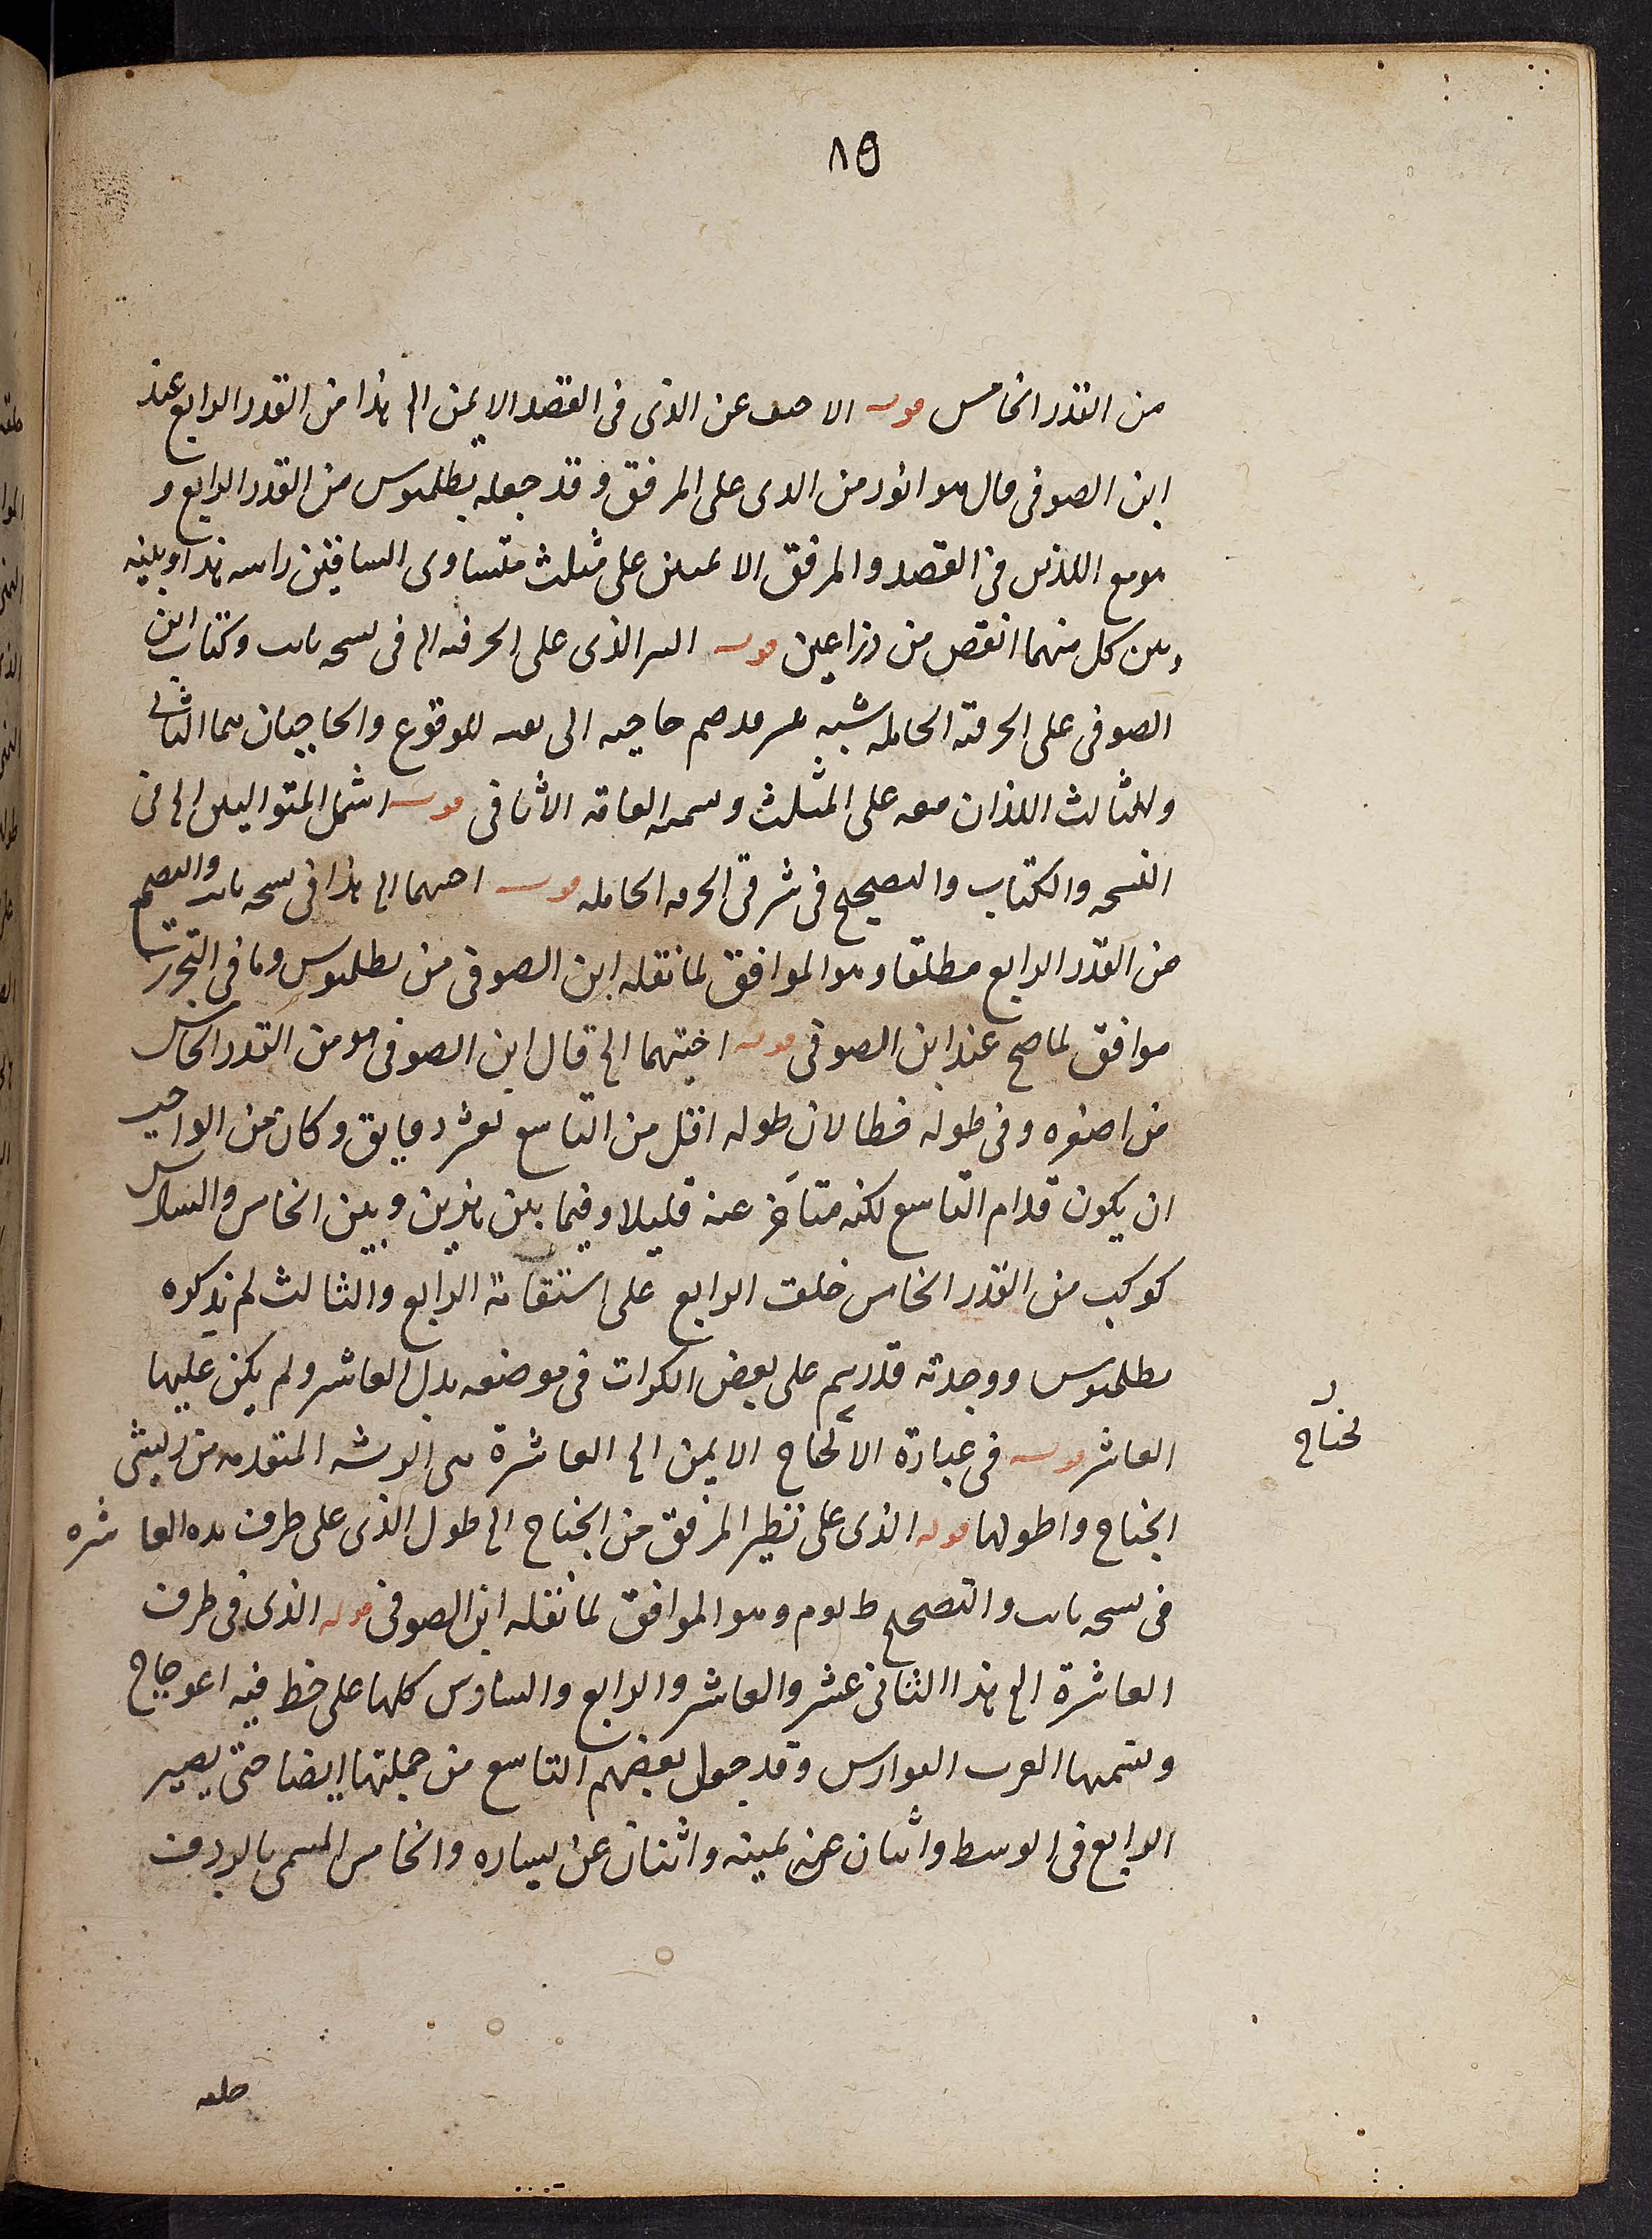 ١٥
من القدر الخامس قوله الاحف عن الذى فى العضد الايمن الخ هذا من القدر الرابع عند
ابن الصوفى قال هو انور من الذى على المرفق وقد جعله بطلميوس من القدر الرابع و
هو مع اللذين فى العضد والمرفق الايمنين على مثلث متساوى الساقين راسه هذا وبينه
وبين كل منهما انقص من ذراعين قوله الذى على الحرقفه الخ فى نسخه ثابت وكتاب ابن
الصوفى على الحرقفه الحامله شبه حاجبه الى للوقوع والحاجبان هما الثانى
والثالث اللذان معه على المثلث وسميه العامه الاثافى قوله اشمل المتواليين الخ فى
النسخه والكتاب والصحيح فى شرقى الحرقفه الحامله قوله الخ هذا فى نسخه ثابت والتصحيح
من القدر الرابع مطلقا وهو الموافق لما نقله ابن الصوفى من بطلميوس وما فى التحرير
موافق لما صح عند ابن الصوفى قوله اختهما الخ قال ابن الصوفى هو من القدر الخامس
من اصغره وفى طوله خطا لان طوله اقل من التاسع بعشر دقايق وكان من الواجب
ان يكون قدام التاسع لكنه متأخر عنه قليلا وفيما بين هذين وبين الخامس والسادس
كوكب من القدر الخامس خلف الرابع على استقامة الرابع والثالث لم يذكره
بطلميوس ووجدته قد رسم على بعض الكرات فى موضعه بدل العاشر ولم يكن عليها
العاشر قوله فى عبارة الالحاح الايمن الخ العاشرة هى الريشه المتقدمه من ريش
لجناح
الجناح واطولها قوله الذى على نظير المرفق من الجناح الخ طول الذى على طرف هذه العاشره
فى نسخه ثابت والتصحيح ط يوم وهو الموافق لما نقله ابن الصوفى قوله الذى فى طرف
العاشرة الخ هذا الثانى عشر والعاشر والرابع والسادس كلها على خط فيه اعوجاج
ويسميها العرب الفوارس وقد جعل بعضهم التاسع من جملتها ايضا حتى يصير
الرابع فى الوسط واثنان عن يمينه واثنان عن يساره والخامس المسمى بالردف
خلفه